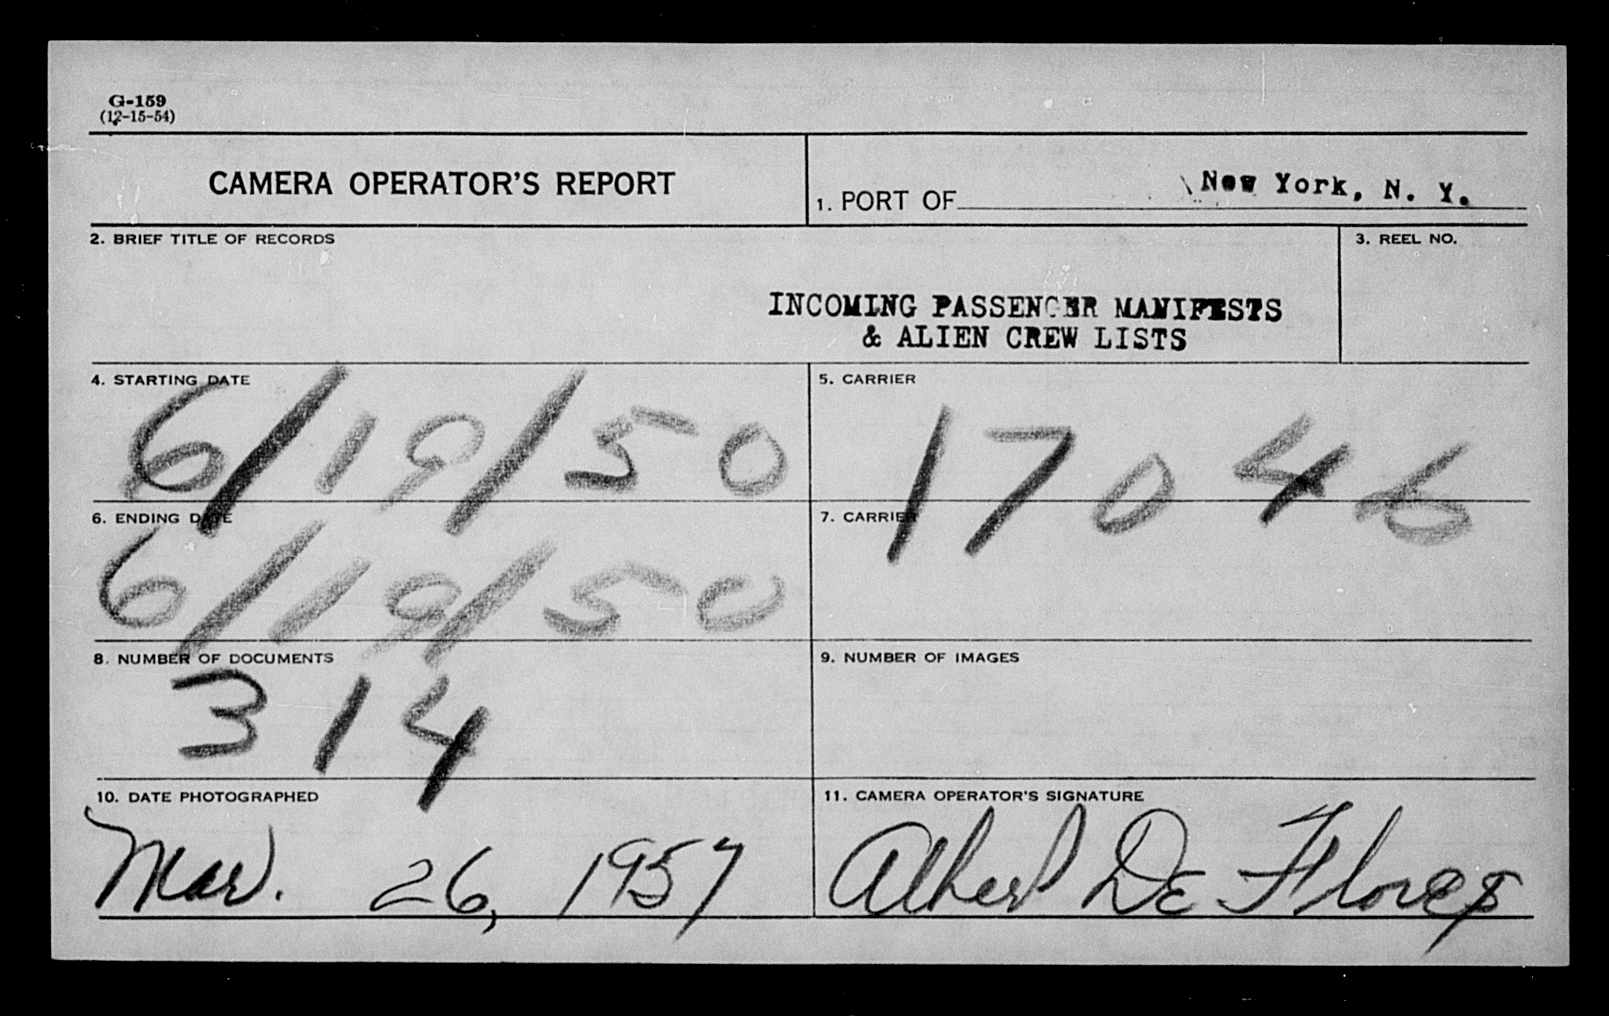 G-159
(12-15-54)
CAMERA OPERATOR'S REPORT
1. PORT OF New York, N. Y.
2. BRIEF TITLE OF RECORDS
3. REEL NO.
INCOMING PASSENGER MANIFESTS
& ALIEN CREW LISTS
4. STARTING DATE
5. CARRIER
6/19/50
17046
6. ENDING DATE
7. CARRIER
6/19/50
8. NUMBER OF DOCUMENTS
9. NUMBER OF IMAGES
314
10. DATE PHOTOGRAPHED
11. CAMERA OPERATOR'S SIGNATURE
Mar. 26, 1957
Albert De Flores